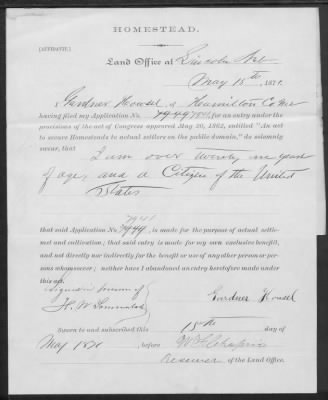 HOMESTEAD.
[AFFIDAVIT.]
Land Office at Lincoln Neb
May 15th, 1871.
I Gardner Housel of Hamilton Co Neb
having filed my Application No. 7949 7941 for an entry under the
provisions of the act of Congress approved May 20, 1862, entitled "An act
to secure Homesteads to actual settlers on the public domain," do solemnly
swear, that
I am over twenty one years
of age, and a Citizen of the United
States
7941
that said Application No. 7949, is made for the purpose of actual settle-
ment and cultivation; that said entry is made for my own exclusive benefit,
and not directly nor indirectly for the benefit or use of any other person or per-
sons whomsoever; neither have I abandoned an entry heretofore made under
this act.
Signed in presence of
Gardner Housel
H. W.
Sworn to and subscribed this 15th day of
May 1871 before
Receiver of the Land Office.